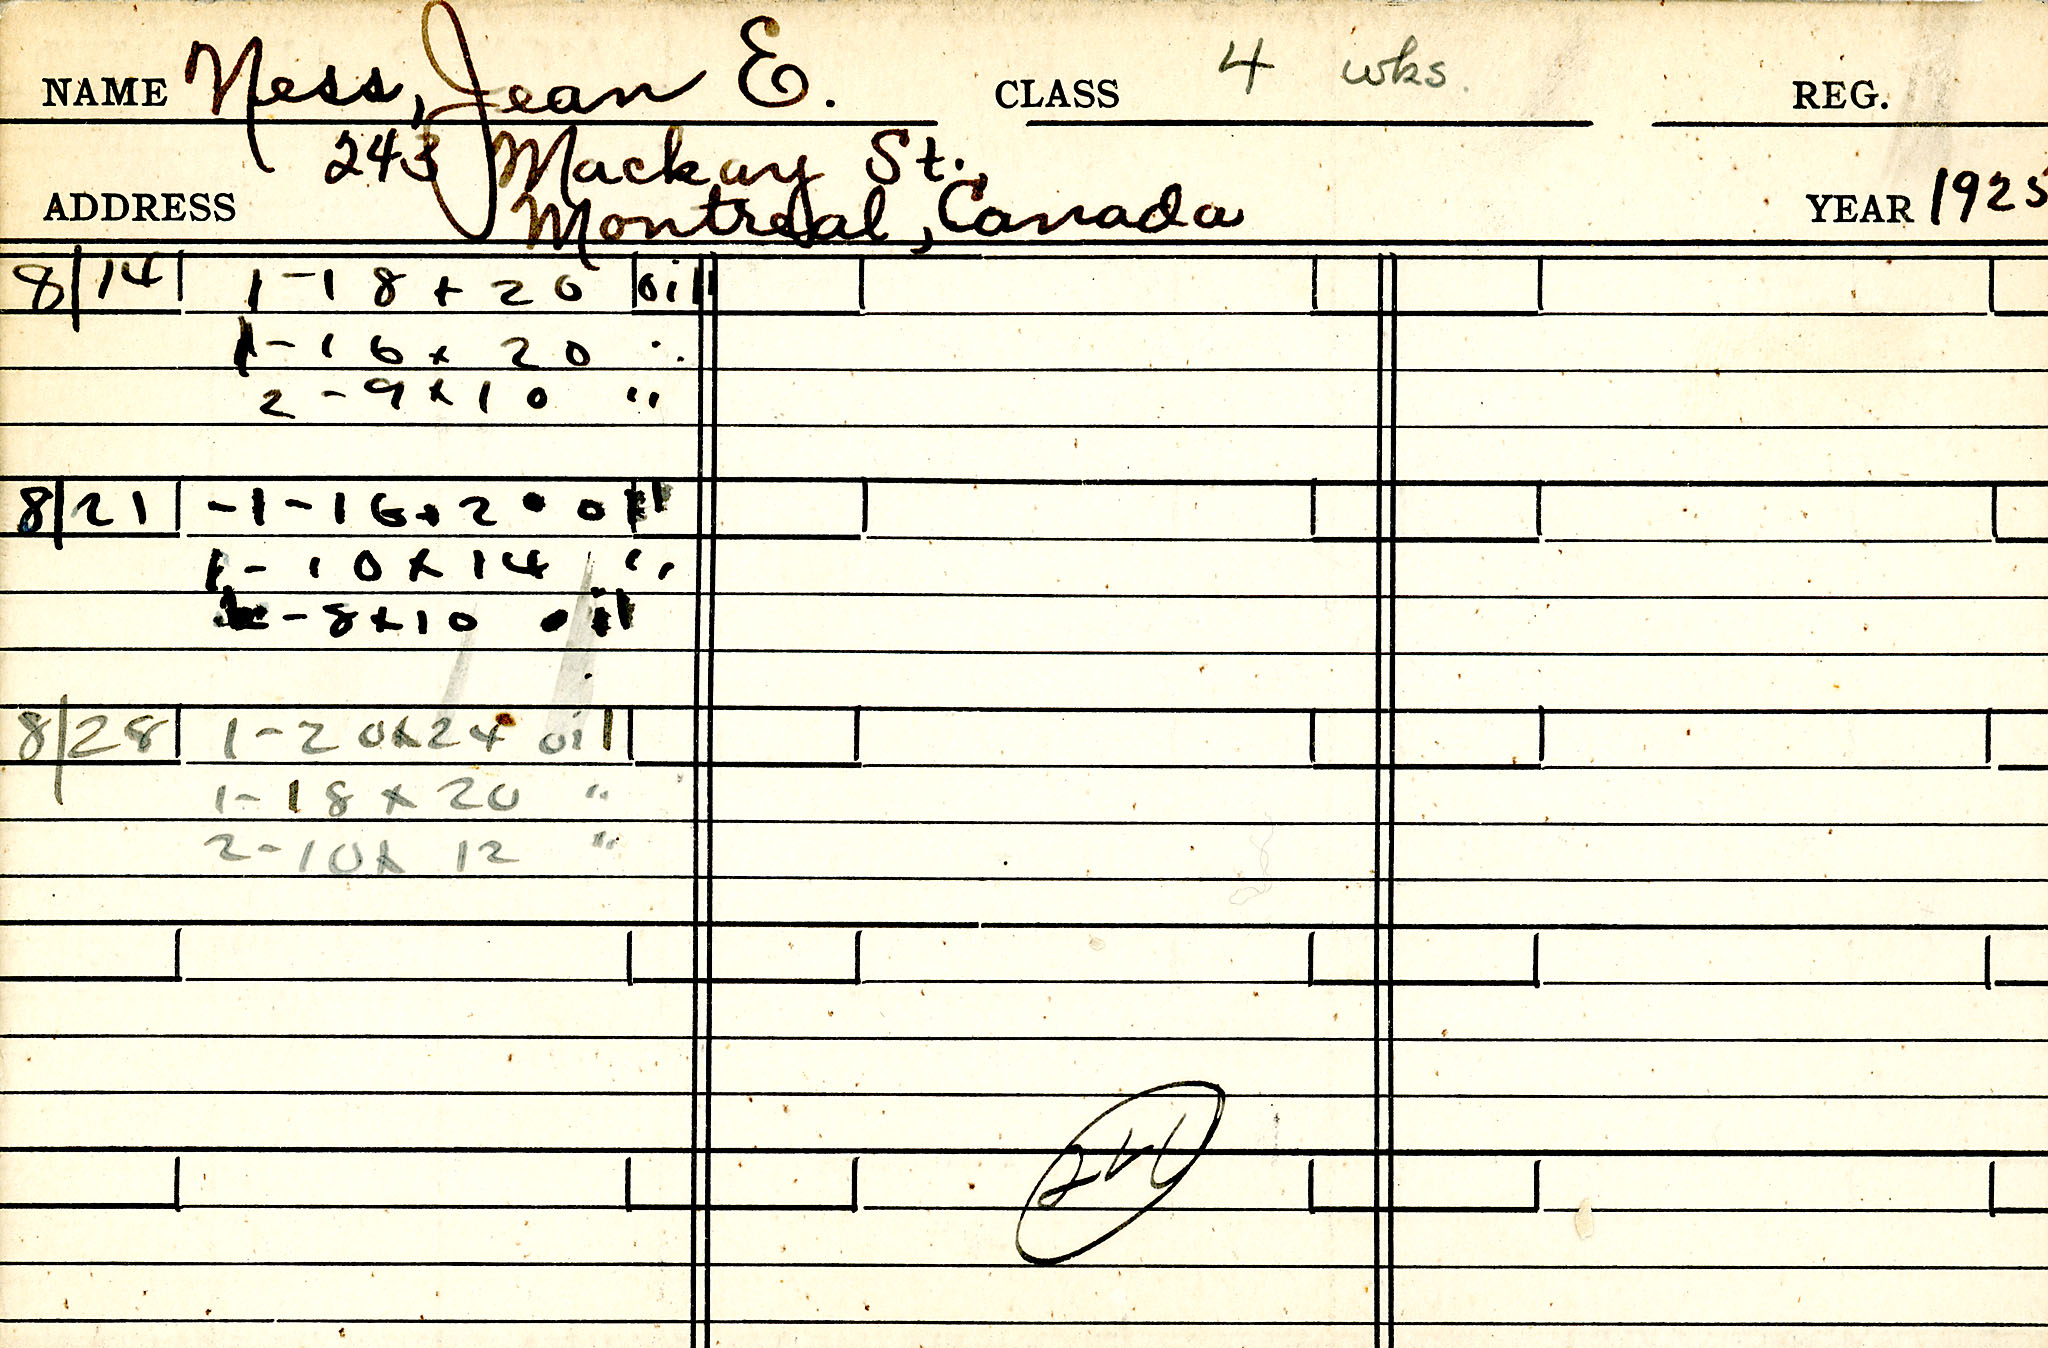 NAME Ness, Jean E. CLASS 4 wks. REG.
243 Mackay St.,
ADDRESS Montreal, Canada YEAR 1925
8/14 1-18x20 oil
1-16x20 "
2-9x10 "
8/21 -1-16x20 oil
1-10x14 "
-8x10 oil
8/28 1-20x24 oil
1-18x20 "
2-10x12 "